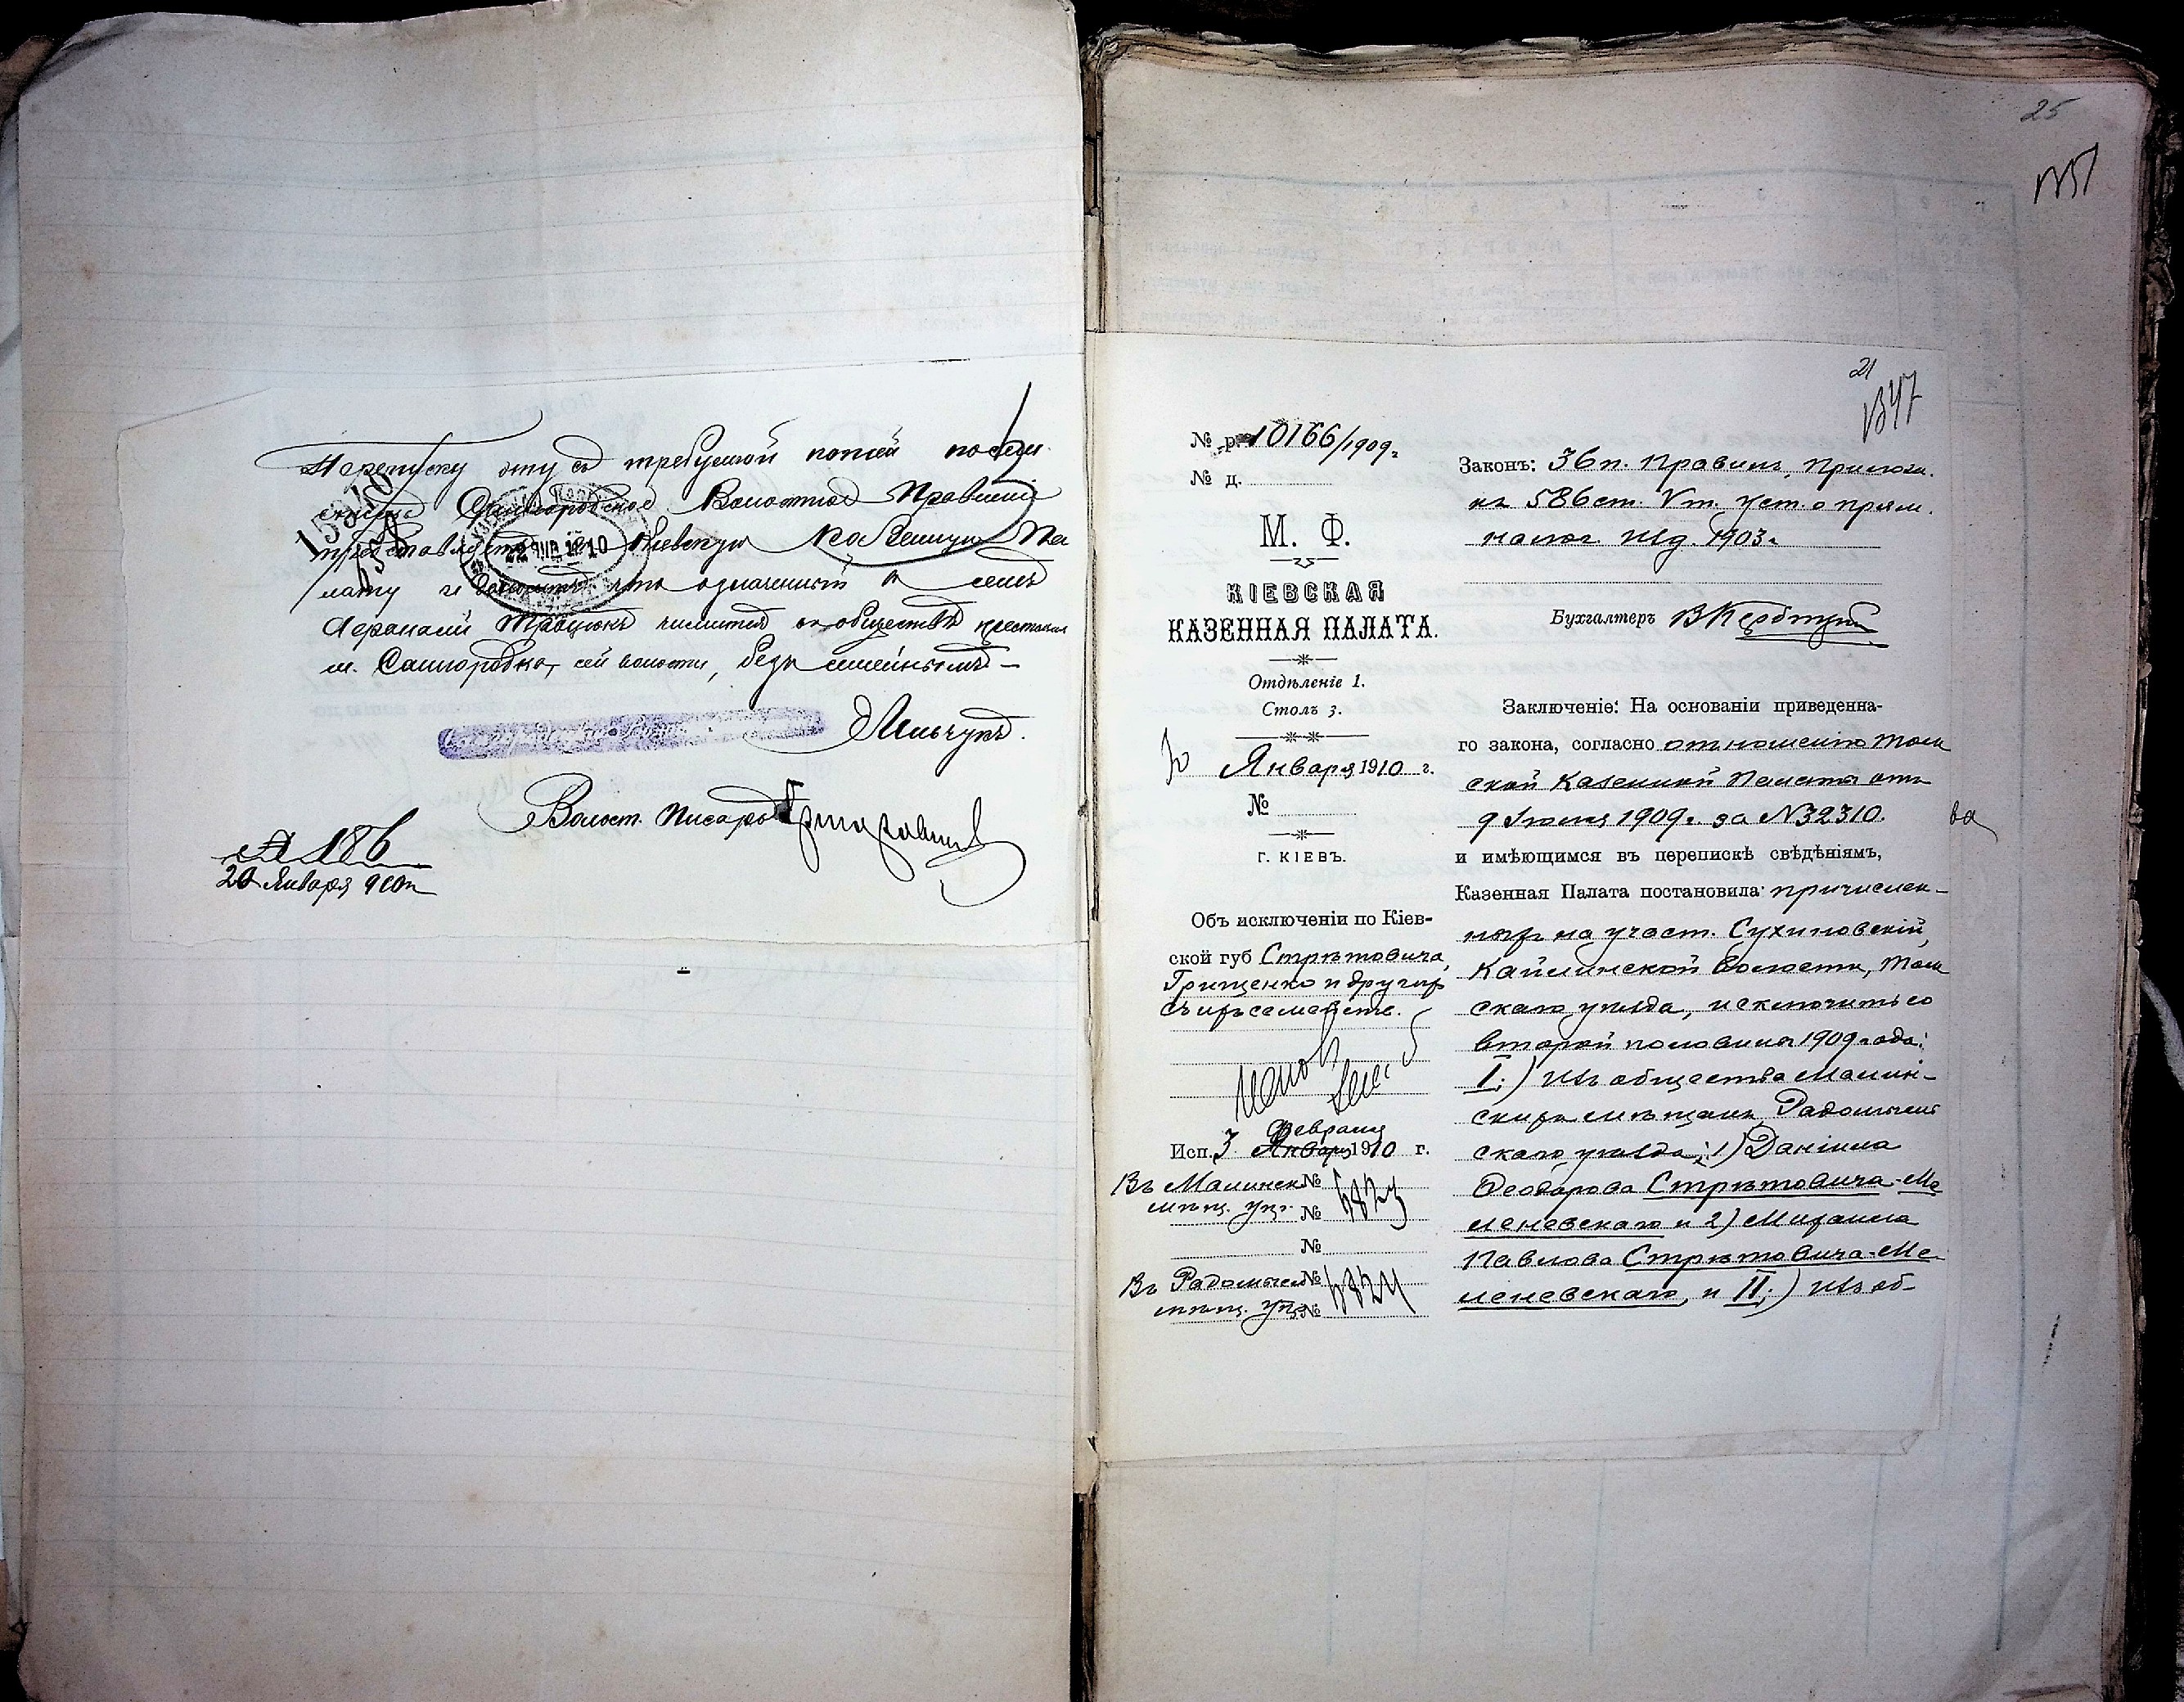 Переписку эту съ требуемой копіей посем.
списка Самгородское Волостное Правленіе
представляетъ въ Кіевскую Казенную Па
лату и доноситъ что означенный въ семъ
Герасимъ числится въ обществѣ крестьянъ
м. Самгородка, сей волости, безъ семейныхъ
15310
22 ЯНВ 1910
Волост. Писарь
№ 186
20 Января 910 г.
25
21
№ р. 10166/1909 г.
№ д.
М. Ф.
КІЕВСКАЯ
КАЗЕННАЯ ПАЛАТА.
Отдѣленіе 1.
Столъ 3.
Января 1910 г.
№
Г. КІЕВЪ.
Объ исключеніи по Кіев-
ской губ Стрѣтовича,
Грищенко и другихъ
съ ихъ семейств.
Исп. 3 Февраля
Января 1910 г.
Въ Малинск. №
мѣщ. упр. № 4823
№
Въ Радомысл. №
мѣщ. упр. № 4824
Законъ: 36 п. Правилъ, прилож.
къ 586 ст. V т. уст. о прям.
налог. изд. 1903 г.
Бухгалтеръ
Заключеніе: На основаніи приведенна-
го закона, согласно отношенію Том
ской Казенной Палаты отъ
9 Іюля 1909 г. за № 32310.
и имѣющимся въ перепискѣ свѣдѣніямъ,
Казенная Палата постановила: причислен-
ныхъ на участ. Сухиновскій,
Кайлинской волости, Том
скаго уѣзда, исключить со
второй половины 1909 года:
I;) Изъ общества Малин-
скихъ мѣщанъ, Радомысль
скаго уѣзда; 1) Даніила
Феодорова Стрѣтовича-Ме
леневскаго и 2) Михаила
Павлова Стрѣтовича-Ме
леневскаго, и II;) Изъ об-